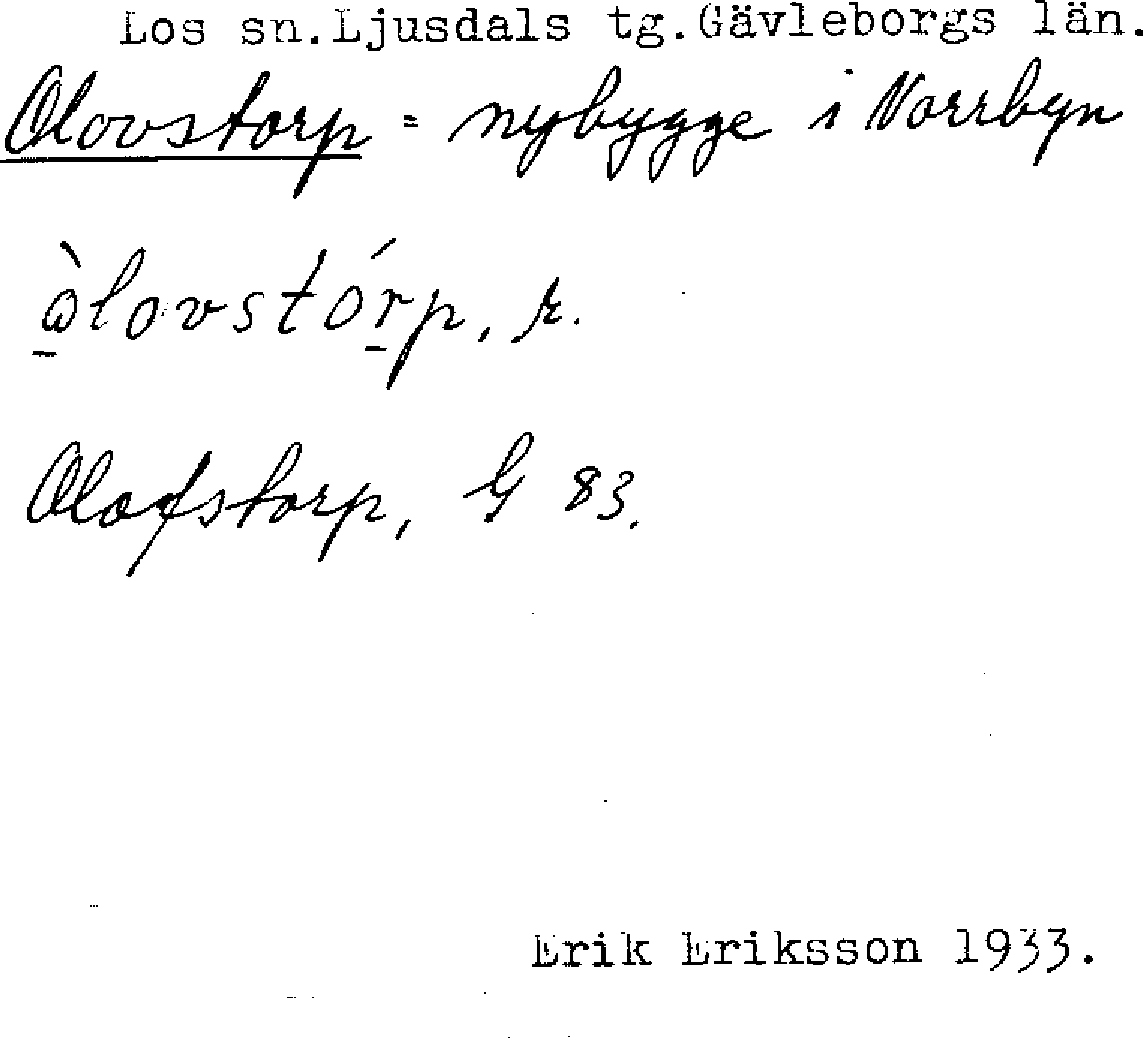 Los sn. Ljusdals tg. Gävleborgs län.
Olovstorp = nybygge i Norrbyn
ὼ̱lovstóṟp, r.
Olofstorp, G 83.
Erik Eriksson 1933.